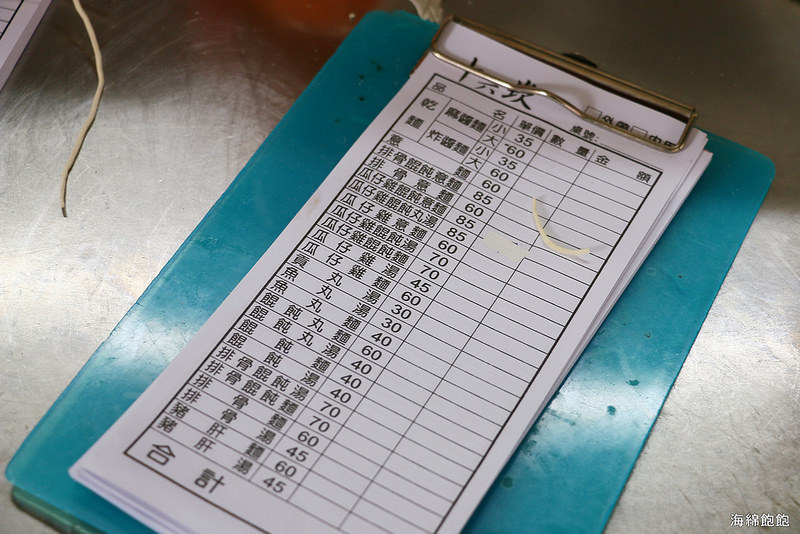 品名 單價 數量 金額
桌號:
乾麵 麻醬麵 小 35
大 60
炸醬麵 小 35
大 60
意麵 60
排骨餛飩意麵 85
排骨意麵 60
瓜仔雞餛飩意麵 85
瓜仔雞餛飩丸湯 85
瓜仔雞意麵 60
瓜仔雞餛飩湯 70
瓜仔雞湯 45
瓜仔雞麵 60
貢丸湯 30
魚丸湯 30
魚丸麵 40
餛飩丸麵 60
餛飩丸湯 40
餛飩麵 40
餛飩湯 40
排骨餛飩湯 70
排骨餛飩麵 70
排骨麵 60
排骨湯 45
豬肝麵 60
豬肝湯 45
合計
海綿飽飽